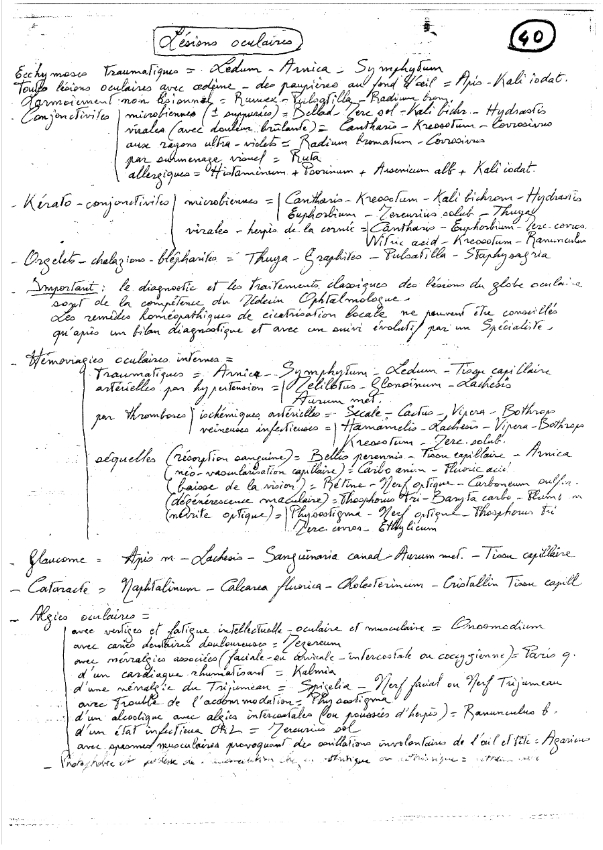 Lésions oculaires
40
Ecchymoses traumatiques = Ledum - Arnica - Symphytum
Toutes lésions oculaires avec œdème - des paupières au fond d'œil = Apis - Kali iodat.
Larmoiement non lésionnel = Rumex - Pulsatilla - Radium brom.
- Conjonctivites microbiennes (± suppurées) = Bellad - Merc sol - Kali bichr. - Hydrastis
virales (avec douleur brûlante) = Cantharis - Kreosotum - Corrosivus
aux rayons ultra-violets = Radium bromatum - Corrosivus
par surmenage visuel = Ruta
allergiques = Histaminum + Psorinum + Arsenicum alb + Kali iodat.
- Kérato-conjonctivites microbiennes = Cantharis - Kreosotum - Kali bichrom - Hydrastis
Euphorbium - Mercurius solub - Thuya
virales - herpès de la cornée = Cantharis - Euphorbium - Merc. corros.
Nitric acid - Kreosotum - Ranunculus
- Orgelets - chalazions - blépharites = Thuya - Graphites - Pulsatilla - Staphysagria
- Important : le diagnostic et les traitements classiques des lésions du globe oculaire
sont de la compétence du Médecin Ophtalmologue.
Les remèdes homéopathiques de cicatrisation locale ne peuvent être conseillés
qu'après un bilan diagnostique et avec un suivi évolutif par un Spécialiste.
- Hémorragies oculaires internes =
traumatiques = Arnica - Symphytum - Ledum - Tissu capillaire
artérielles par hypertension = Melilotus - Glonoïnum - Lachesis
Aurum met.
par thromboses ischémiques artérielles = Secale - Cactus - Vipera - Bothrops
veineuses infectieuses = Hamamelis - Lachesis - Vipera - Bothrops
Kreosotum - Merc. solub.
séquelles (résorption sanguine) = Bellis perennis - Tissu capillaire - Arnica
(néo-vascularisation capillaire) = Carbo anim - Fluoric acid
(baisse de la vision) = Rétine - Nerf optique - Carboneum sulfur.
(dégénérescence maculaire) = Phosphorus tri - Baryta carbo - Plumb m
(névrite optique) = Physostigma - Nerf optique - Phosphorus tri
Merc. corros - Ethylicum
- Glaucome = Apis m - Lachesis - Sanguinaria canad - Aurum met. - Tissu capillaire
- Cataracte = Naphtalinum - Calcarea fluorica - Cholesterinum - Cristallin Tissu capill
- Algies oculaires =
avec vertiges et fatigue intellectuelle - oculaire et musculaire = Onosmodium
avec caries dentaires douloureuses = Mezereum
avec névralgies associées (faciale - ou cervicale - intercostale ou coccygienne) = Paris q.
d'un cardiaque rhumatisant = Kalmia
d'une névralgie du Trijumeau = Spigelia - Nerf facial ou Nerf Trijumeau
avec trouble de l'accommodation = Physostigma
d'un alcoolique avec algies intercostales (ou poussées d'herpès) = Ranunculus b.
d'un état infectieux ORL = Mercurius sol
avec spasmes musculaires provoquant des oscillations involontaires de l'œil et tête = Agaricus
- Photophobie et